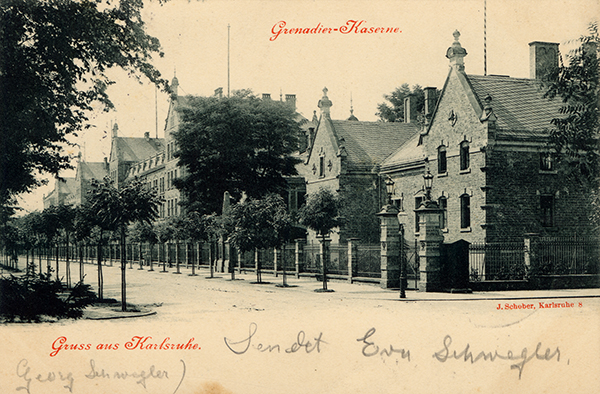 Grenadier-Kaserne.
J. Schober, Karlsruhe 8
Gruss aus Karlsruhe.
Sendet Schwegler.
Georg Schwegler)